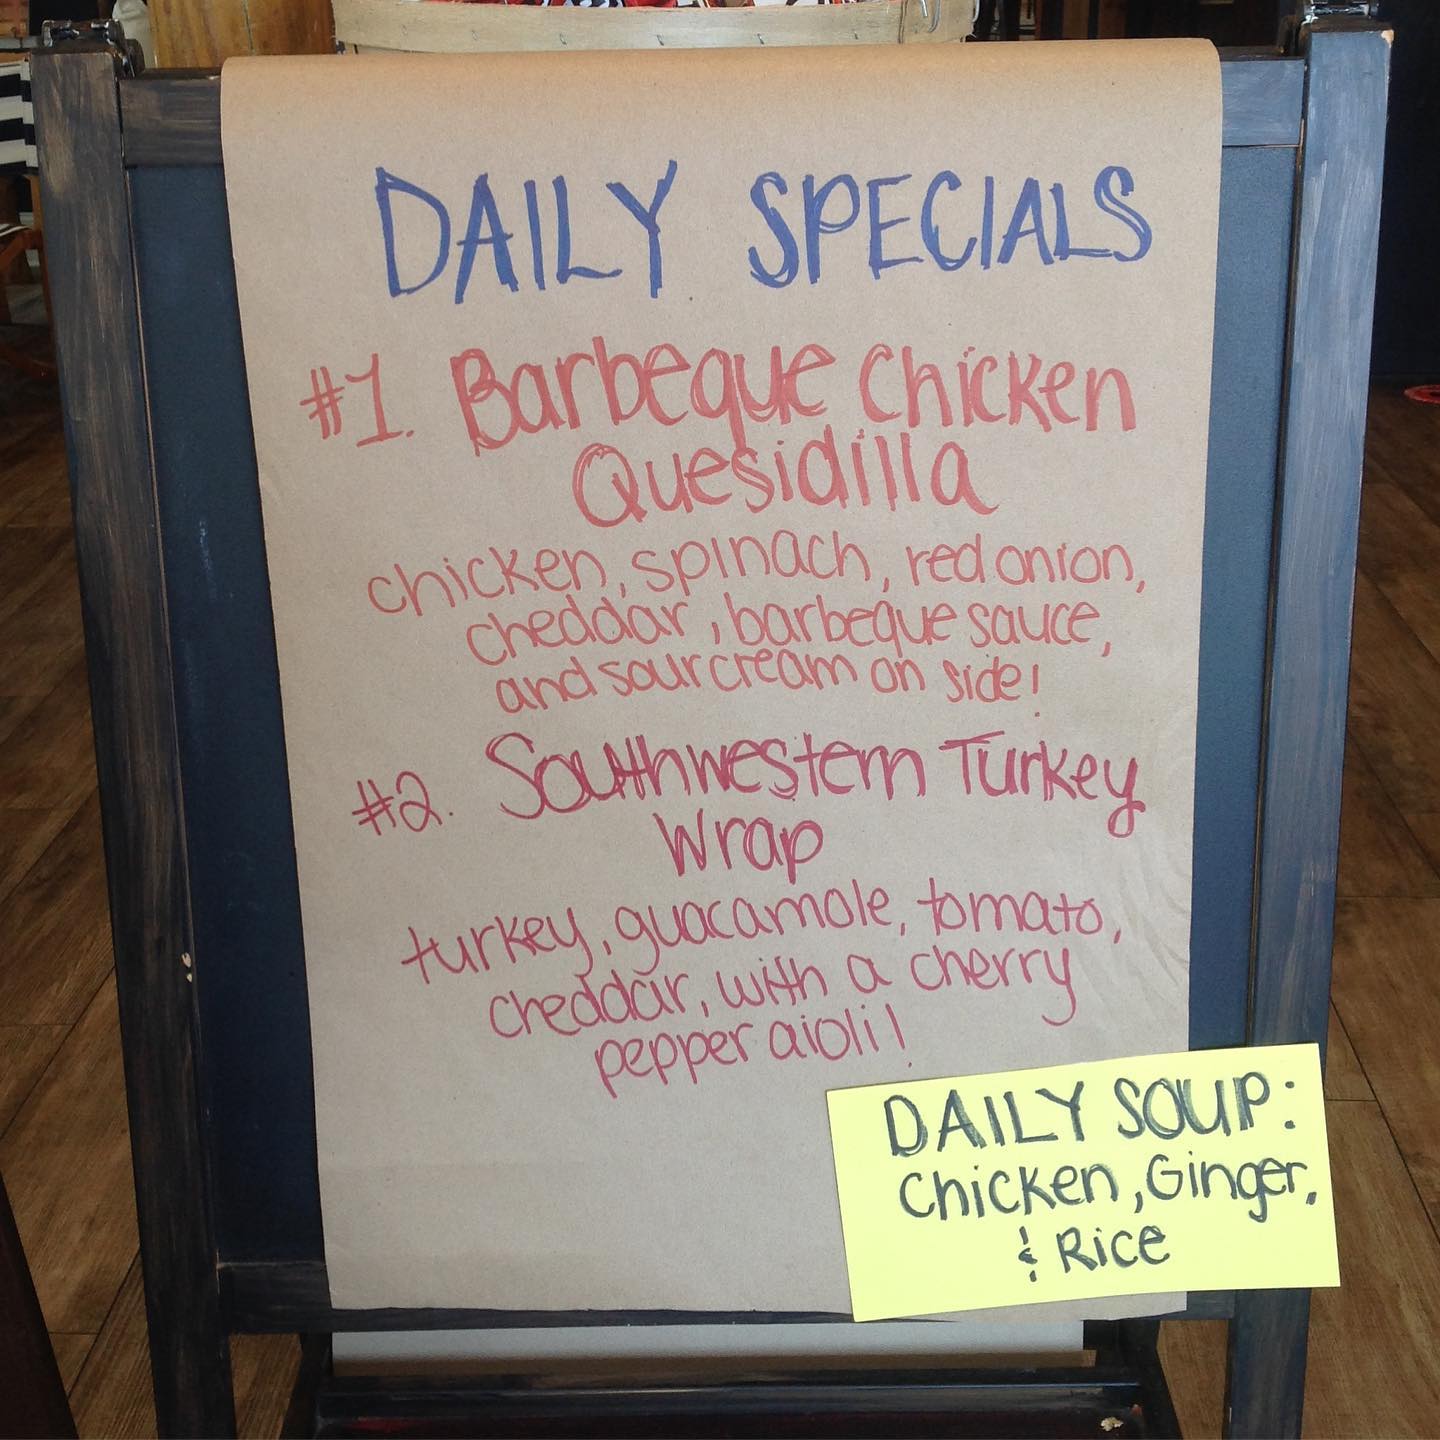 DAILY SPECIALS
#1. Barbeque Chicken
Quesidilla
chicken, spinach, red onion,
cheddar, barbeque sauce,
and sour cream on side!
#2. Southwestern Turkey
Wrap
turkey, guacamole, tomato,
cheddar, with a cherry
pepper aioli!
DAILY SOUP:
Chicken, Ginger,
& Rice